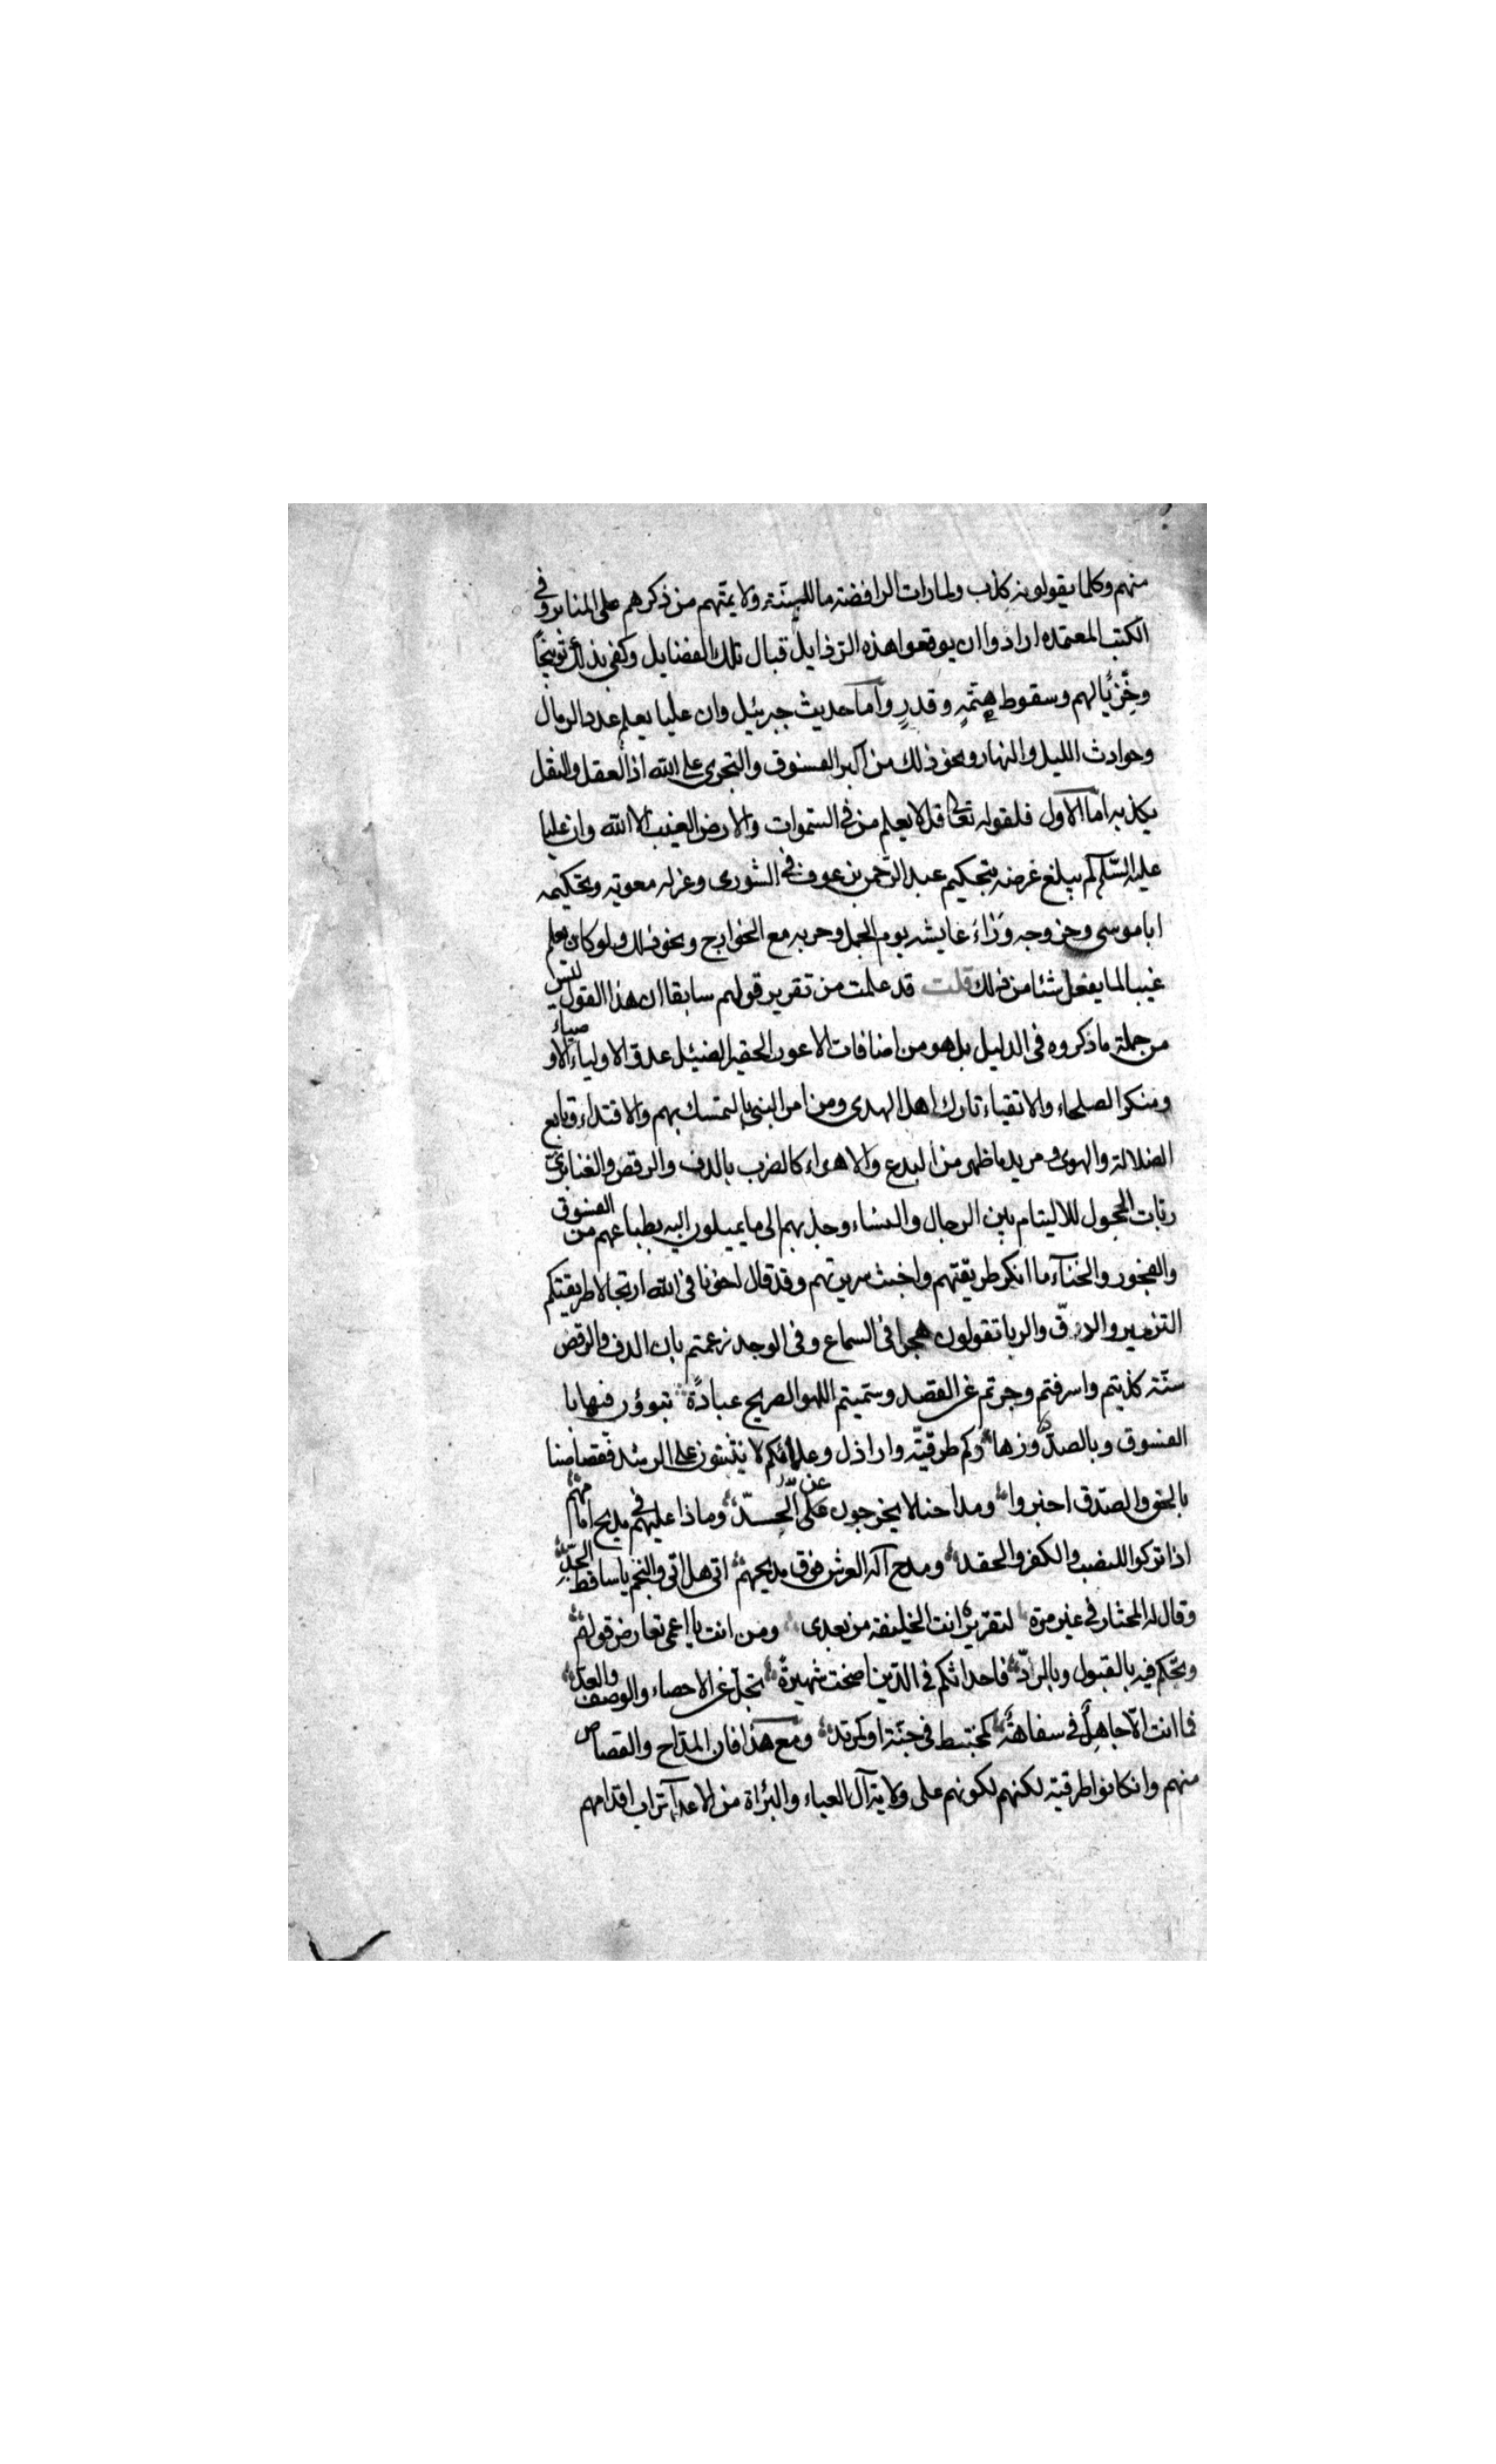 منهم وكلما يقولونه كذب ولما رات الرافضة ما للسنة ولايمتهم من ذكرهم على المنابر وفي
الكتب المعتمده ارادوا ان يوقعوا هذه الرذايل قبال تلك الفضايل وكفى بذلك توبيخاً
وخزيا لهم وسقوط همة وقدر واما حديث جبرئيل وان عليا يعلم عدد الرمال
وحوادث الليل والنهار ونحو ذلك من اكبر الفسوق والتجرى على الله اذ العقل والنقل
يكذبه اما الاول فلقوله تعالى قل لا يعلم من في السموات والارض الغيب الا الله وان عليا
عليه السلام لم يبلغ غرضه بتحكيم عبد الرحمن بن عوف في الشورى وعزله معوية وتحكيمه
ابا موسى وخروجه وراء عايشه يوم الجمل وحربه مع الخوارج ونحو ذلك ولو كان يعلم
غيبا لما يفعل شئا من ذلك قلت قد علمت من تقرير قولهم سابقا ان هذا القول ليس
من جملة ما ذكروه في الدليل بل هو من اضافات الاعور الحقير الضئيل عدو الاولياء والاوصياء
ومنكر الصلحاء والاتقياء تارك اهل الهدى ومن امر النبي بالتمسك بهم والاقتداء وتابع
الضلالة والهوى ومريد ما ظهر من البدع والاهواء كالضرب بالدف والرقص والغنا
ربات الحجول للاليتام بين الرجال والنساء وجذبهم الى ما يميلون اليه بطباعهم من الفسوق
والفجور والخناء ما انكر طريقتهم واخبث سريرتهم وقد قال اخونا في الله ارتجالا طريقتكم
التزمير والدق والربا تقولون هجرا في السماع وفي الوجد زعمتم بان الدف والرقص
سنة كذبتم واسرفتم وجرتم عن القصد وسميتم اللهو الصريح عبادة تبوؤن فيها با
الفسوق وبالصد وزها وكم طرقية واراذل وعلمائكم لا ينثنون على الرشد فقصاصنا
بالحق والصدق اخبروا ومداحنا لا يخرجون عن الحد وماذا عليهم في مديح امامهم
اذا تركوا للنصب والكفر والحقد ومدح آله العرش فوق مديحهم اتى هل اتى والنجم يا ساقط الجد
وقال له المختار في غير مرة لتقريره انت الخليفة من بعدى ومن انت يا اعمى تعارض قولهم
وتحكم فيه بالقبول وبالرد فاحداثكم في الدين اضحت شهيرة تجل عن الاحصاء والوصف والعد
فما انت الا جاهل في سفاهة كمختبط في جنة او كمرتد ومع هذا فان المداح والقصاص
منهم وان كانوا طرقية لكنهم لكونهم على ولاية آل العباء والبراة من الاعداء تراب اقدامهم